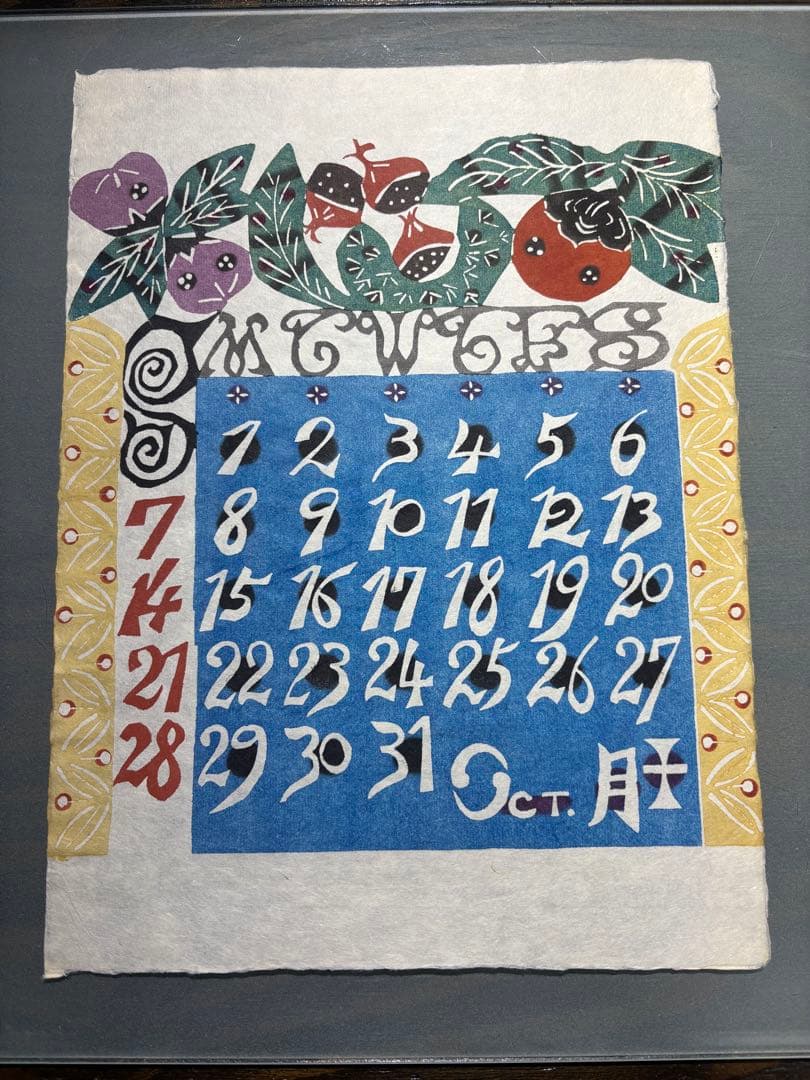 S M T W T F S
1 2 3 4 5 6
7 8 9 10 11 12 13
14 15 16 17 18 19 20
21 22 23 24 25 26 27
28 29 30 31 OCT. 十月